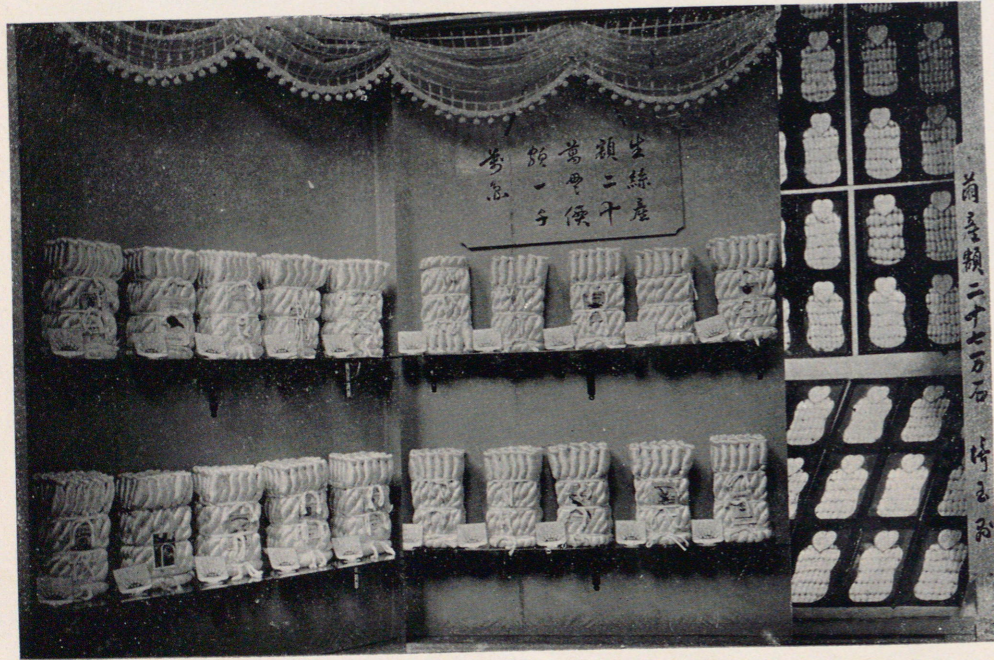 生絲產
額二十
萬貫價
額一千
萬圓
繭產額二十七万石 埼玉縣